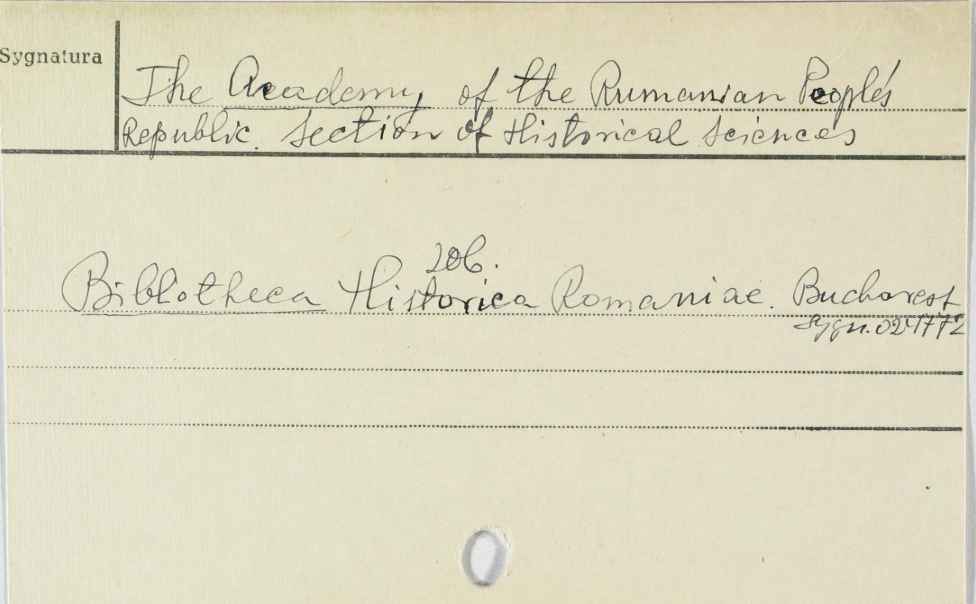 Sygnatura
The Academy of the Rumanian People's
Republic. Section of Historical Sciences
zob.
Biblotheca Historica Romaniae. Bucharest
Sygn.